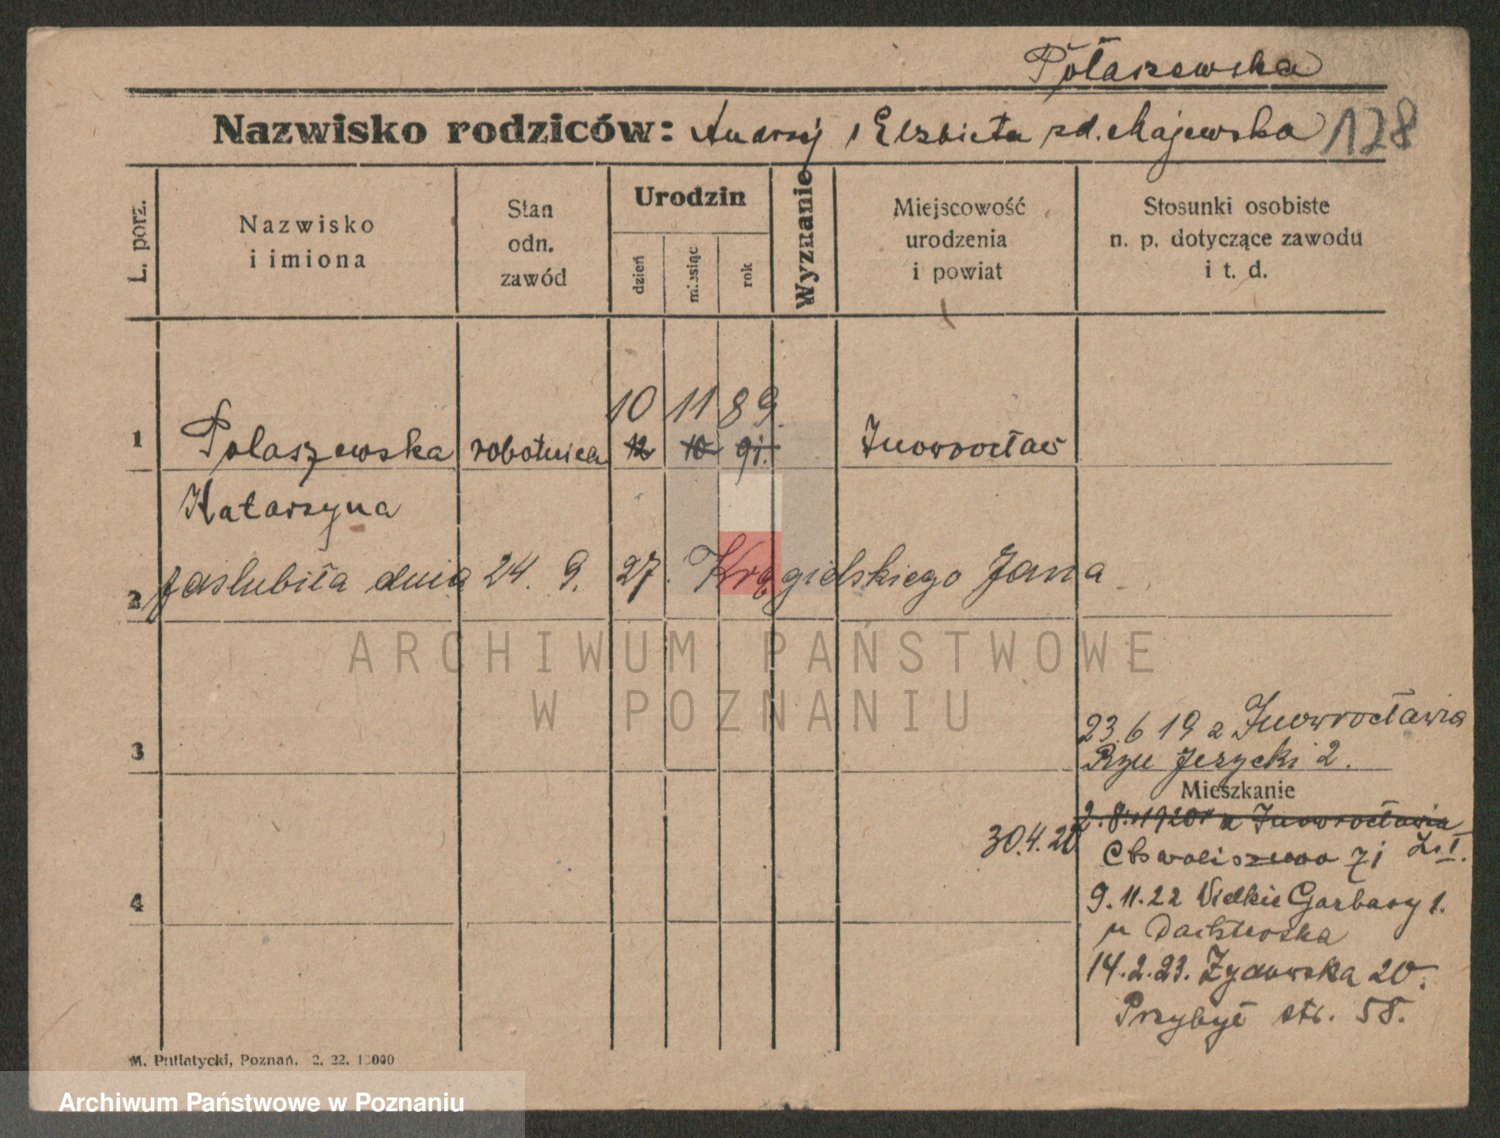 Połaszewska
Nazwisko rodziców: Andrzej i Elżbieta zd. Majewska
128
L. porz.
Nazwisko i imiona
Stan odn. zawód
Urodzin
dzień
miesiąc
rok
Wyznanie
Miejscowość urodzenia i powiat
Stosunki osobiste n. p. dotyczące zawodu i t. d.
10 11 89.
1 Polaszewska robotnica 12 10 91. Inowrocław
Katarzyna
2 zaslubiła dnia 24. 9. 27. Krągielskiego Jana
23.6 19 z Inowrocławia
3 Ryn Jeżycki 2.
Mieszkanie
2.8.1920 z Inowrocławia
30.4.20 Chwaliszewo 71
4 9.11.22 Wielkie Garbary 1.
14.2.23. Żydowska 20.
Przybył str. 58.
M. Putiatycki, Poznań. 2. 22. 1 000
ARCHIWUM PAŃSTWOWE
W POZNANIU
Archiwum Państwowe w Poznaniu